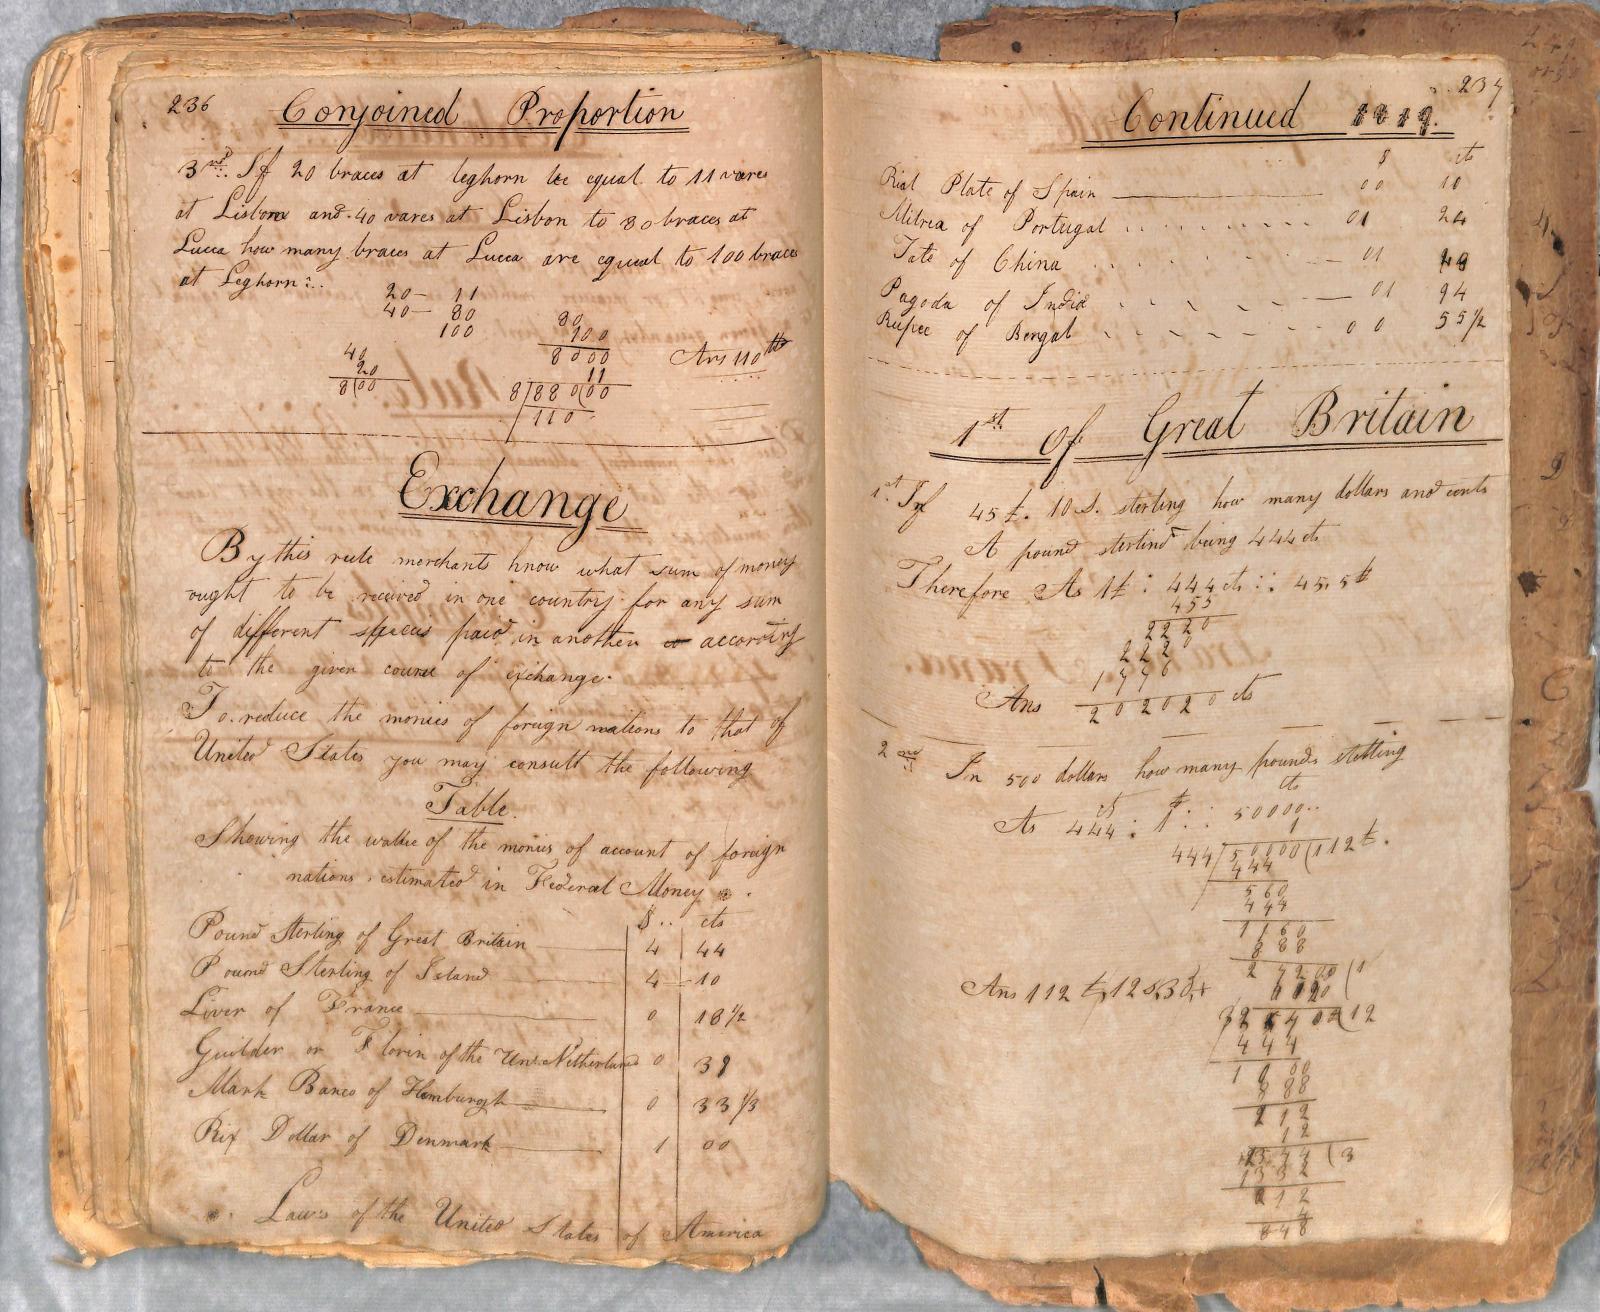 236 Conjoined Proportion
3rd. If 20 braces at leghorn be equal to 11 vares
at Lisbon and 40 vares at Lisbon to 80 braces at
Lucca how many braces at Lucca are equal to 100 braces
at Leghorn:..
20 — 11
40 — 80
100
80
100
8000
11
8/880(00
110
40
20
8(00
Ans 110
Exchange
By this rule merchants know what sum of money
ought to be received in one country for any sum
of different species paid in another according
to the given course of exchange.
To reduce the monies of foreign nations to that of
United States you may consult the following
Table.
Showing the value of the monies of account of foreign
nations estimated in Federal Money *.
$ .. cts
Pound Sterling of Great Britain 4 44
Pound Sterling of Island 4 10
Liver of France 0 18 1/2
Guilder or Florin of the Uni. Netherland 0 39
Mark Banco of Hamburgh 0 33 1/3
Rix Dollar of Denmark 1 00
*. Laws of the United States of America
237
Continued 1819.
$ cts
Rial Plate of Spain 00 10
Milrea of Portugal 01 24
Tale of China 01 48
Pagoda of India 01 94
Rupee of Bengal 00 55 1/2
1st Of Great Britain
1st. If 45 £. 10 S. sterling how many dollars and cents
A pound sterlind being 444 cts
Therefore As 1£ : 444 cts :: 45.5 £
455
2220
2220
1776
Ans 202020 cts
2nd In 500 dollars how many pounds sterling
cts £ cts
As 444 : 1 :: 50000..
1
444/50000(112 £.
444
560
444
1160
888
272
Ans 112 £, 12 s, 3 d,+
444
1000
888
212
12
(3
1332
212
4
848